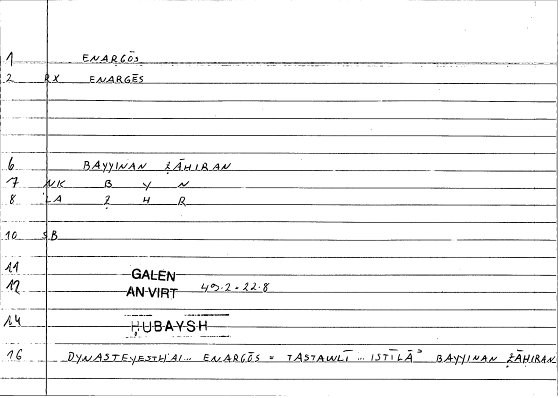 1 ENARGŌS
2 RX ENARGĒS
6 BAYYINAN ẒĀHIRAN
7 NK B Y N
8 LA Ẓ H R
10 SB
11 GALEN
12 AN VIRT 49.2-22.8
14 ḤUBAYSH
16 DYNASTEYESTHAI... ENARGŌS = TASTAWLĪ ... ISTĪLĀʾ BAYYINAN ẒĀHIRAN